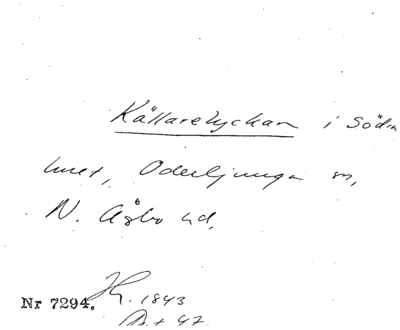 Källarelyckan i Södra
Oderljunga sn,
N. Åsbo hd,
Nr 7294. 1843
47.